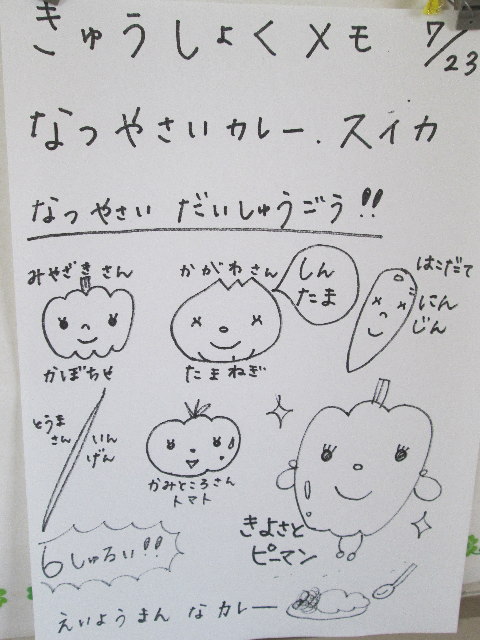 きゅうしょくメモ 7/23
なつやさいカレー．スイカ
なつやさい だいしゅうごう!!
みやざきさん
かぼちゃ
かがわさん
しん
たま
たまねぎ
はこだて
にん
じん
とうま
さん
いん
げん
かみところさん
トマト
きよさと
ピーマン
6しゅるい!!
えいようまんなカレー